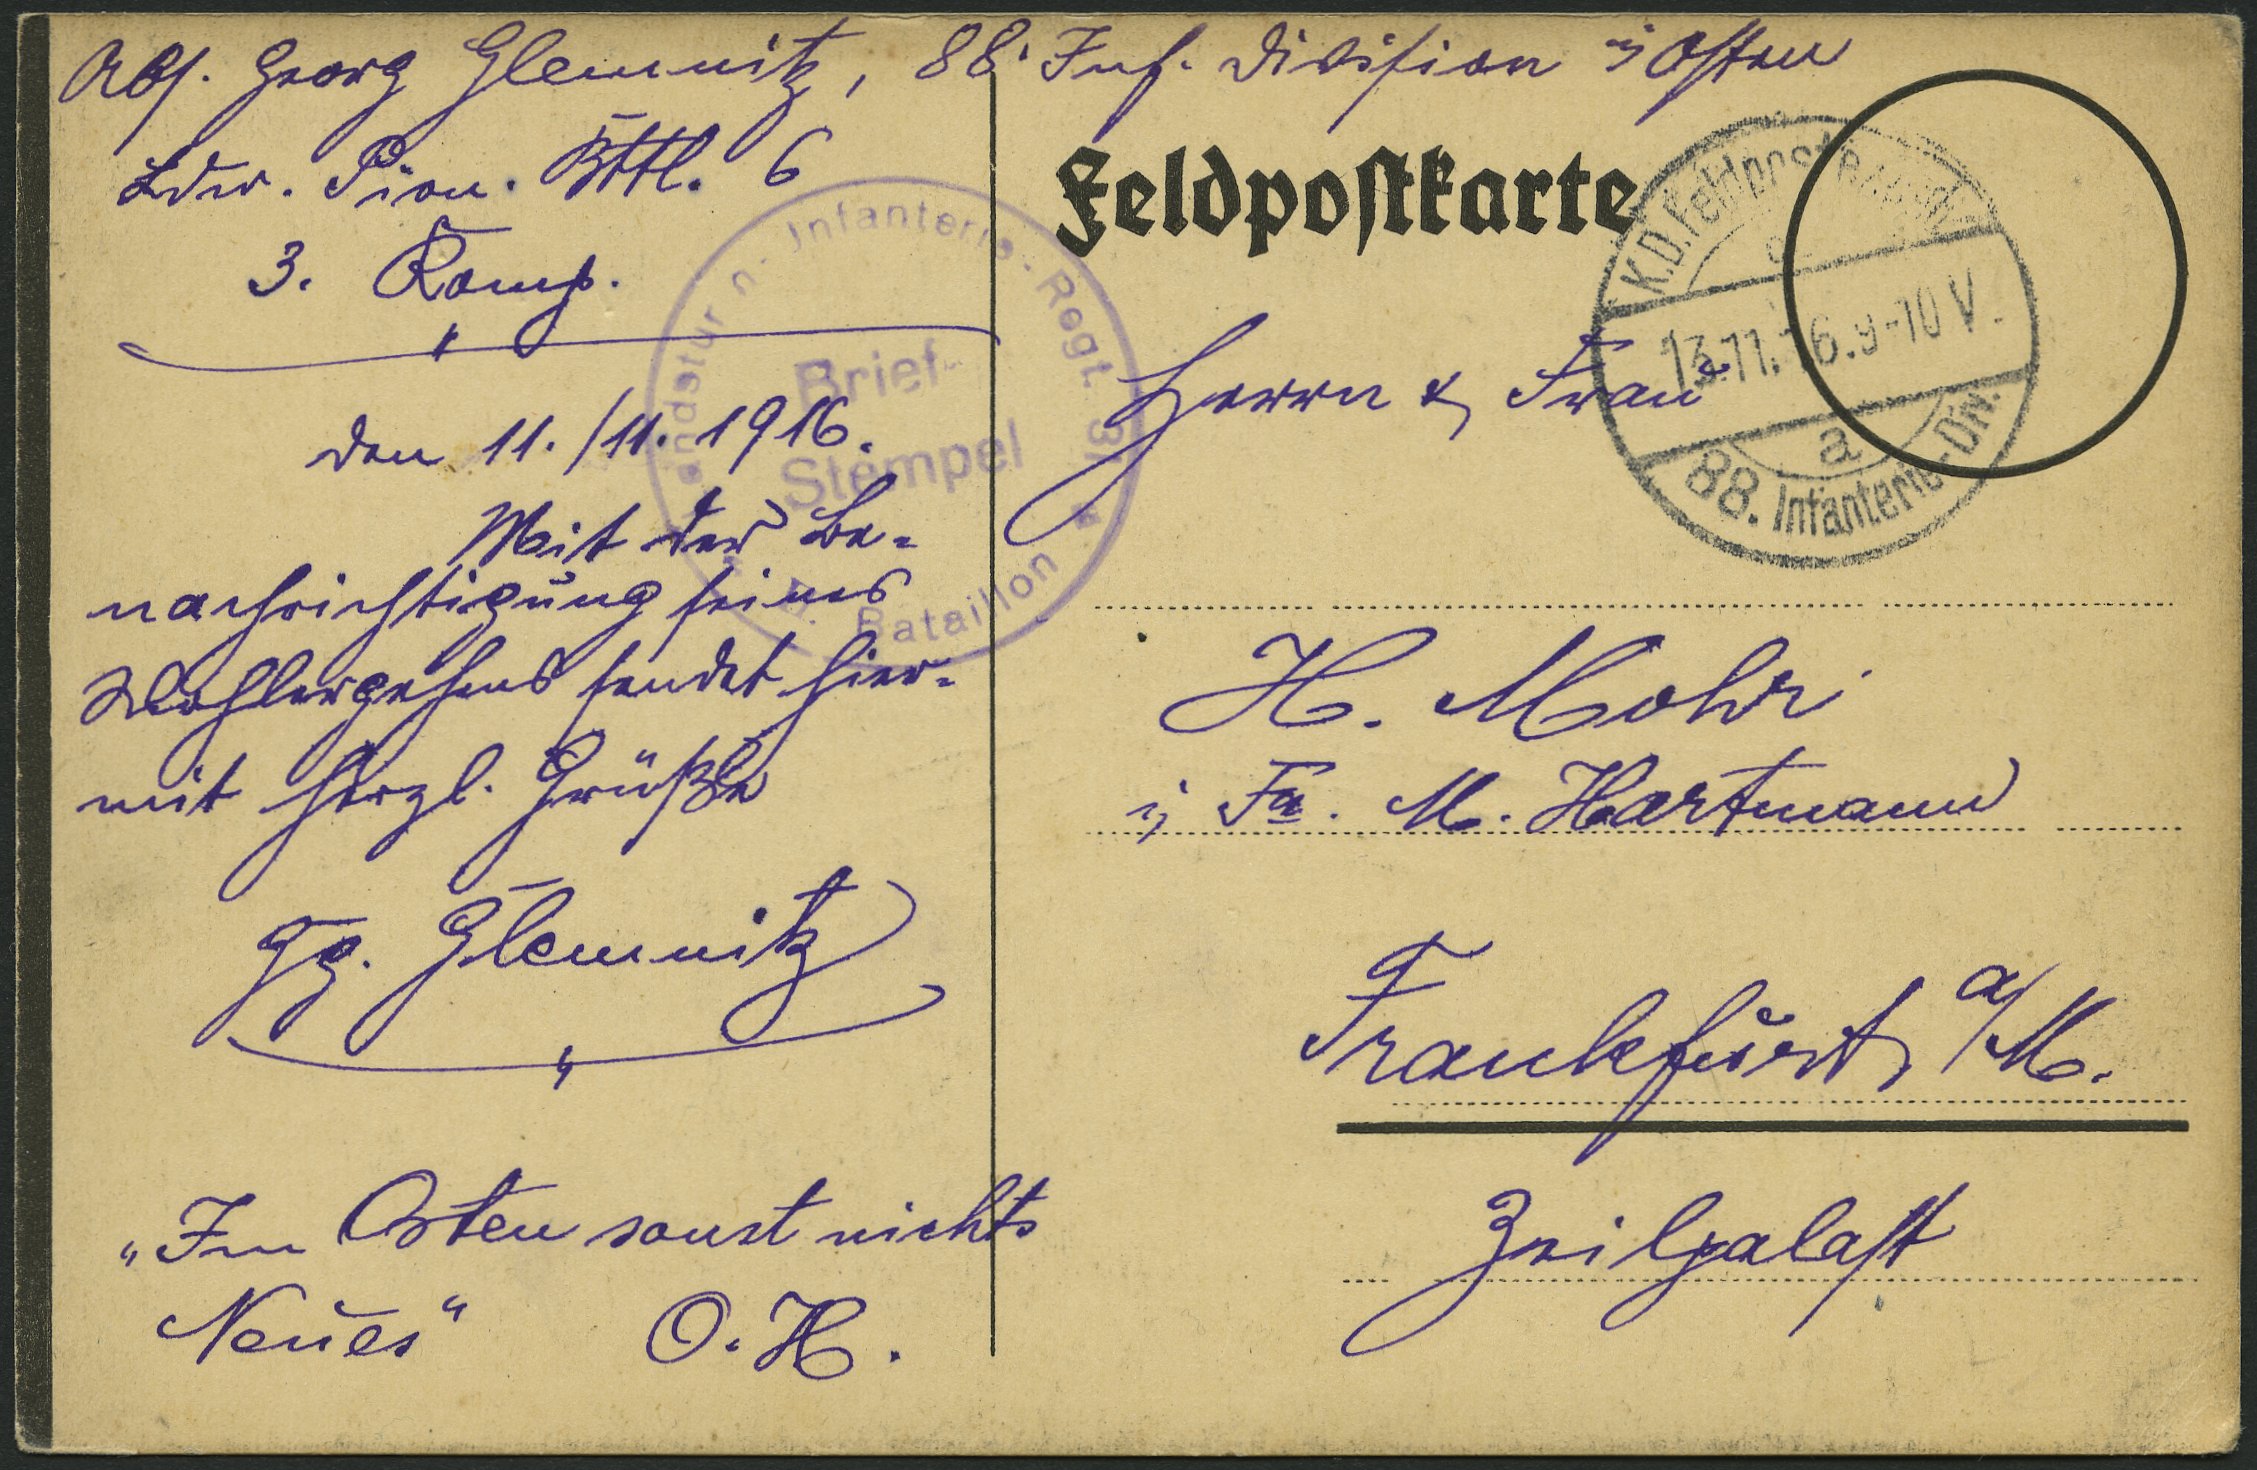 Abs. Georg Glemnitz, 88. Inf. Division i/ Osten
Ldw. Pion. Bttl. 6
3. Komp.
den 11./11. 1916.
Mit der Be-
nachrichtigung seines
Wohlergehens sendet hier-
mit herzl. Grüße
Gg. Glemnitz
"Im Osten sonst nichts
Neues" O. H.
Infanterie-Regt.
Brief-
Stempel
Bataillon
Feldpostkarte
K.D. Feldpost
13.11.16. 9-10 V.
a
88. Infanterie-Div.
Herrn & Frau
H. Mohr
i/ Fa. M. Hartmann
Frankfurt a/M.
Zeilpalast